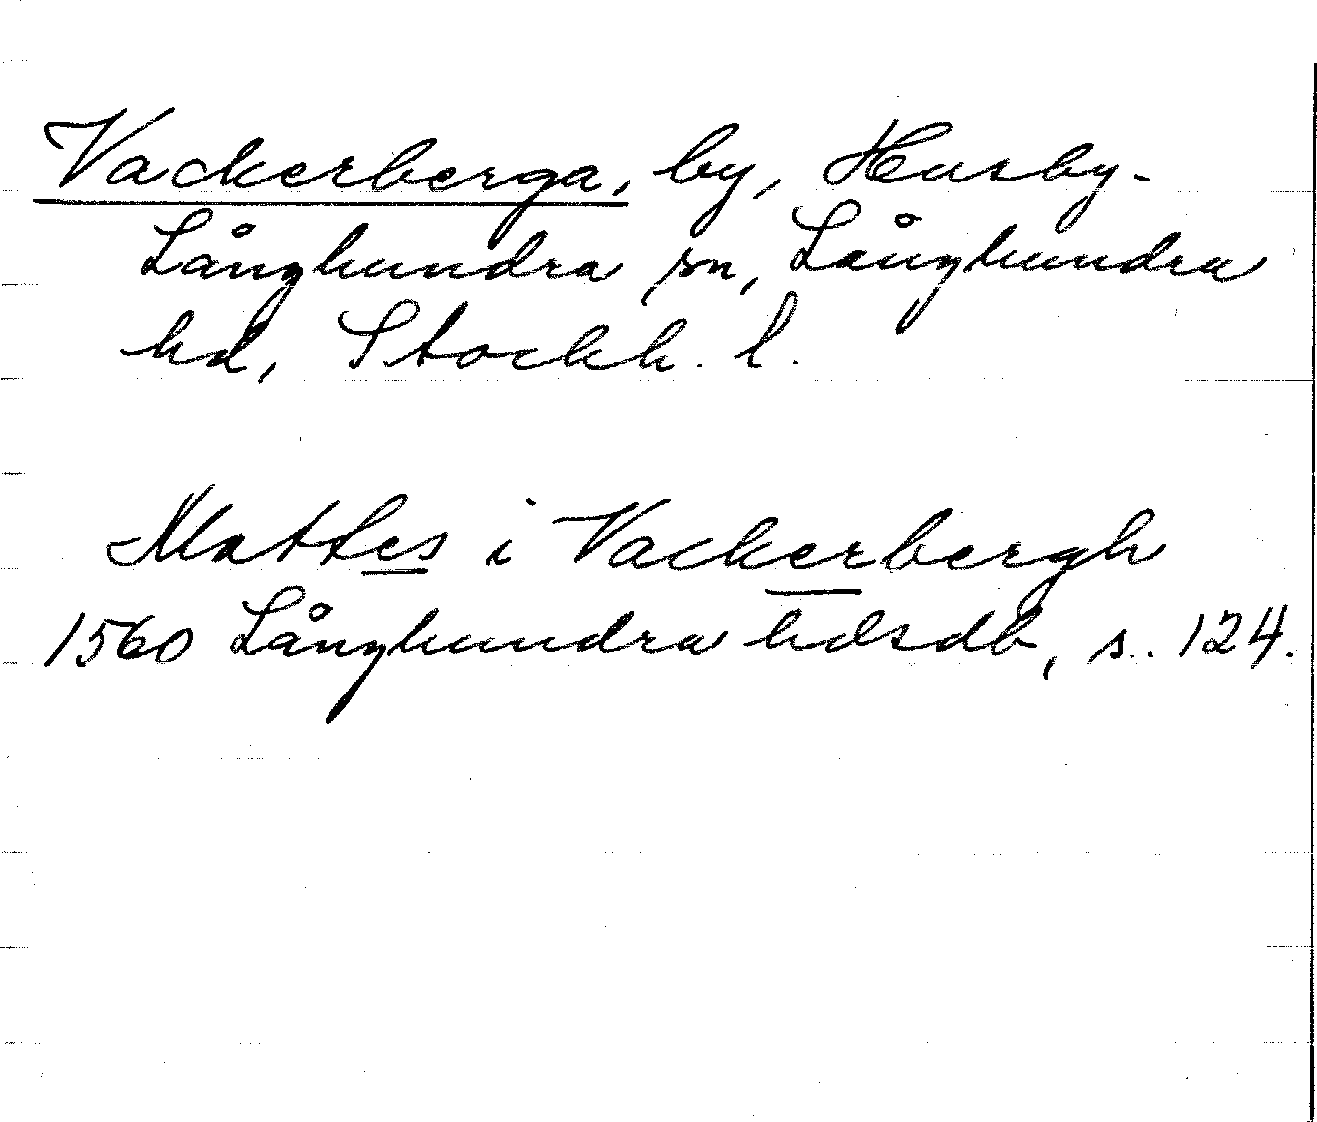 Vackerberga, by, Husby-
Långhundra sn, Långhundra
hd, Stockh. l.
Mattes i Vackerbergh
1560 Långhundra hdsdb, s. 124.